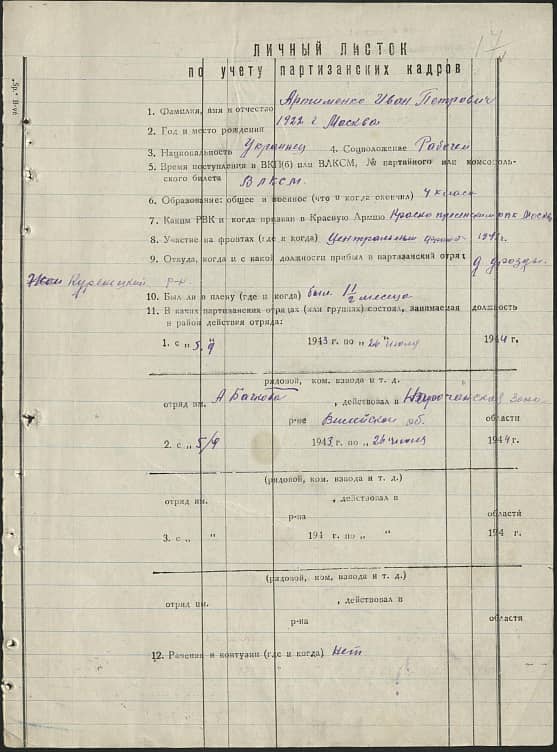 17
ЛИЧНЫЙ ЛИСТОК
по учету партизанских кадров
1. Фамилия, имя и отчество Артименко Иван Петрович
2. Год и место рождения 1922 г Москва
3. Национальность Украинец 4. Соцположение Рабочий
5. Время поступления в ВКП(б) или ВЛКСМ, № партийного или комсомоль-
ского билета ВЛКСМ.
6. Образование: общее и военное (что и когда окончил) 4 класса
7. Каким РВК и когда призван в Красную Армию Москва
8. Участие на фронтах (где и когда) Центральный
9. Откуда, когда и с какой должности прибыл в партизанский отряд д
Куренецкий р-н
10. Был ли в плену (где и когда) был 1 1/2 месяца
11. В каких партизанских отрядах (или группах) состоял, занимаемая должность
в район действия отряда:
1. с „ 5. 9 " 1943 г. по „ 26 " июля 1944 г.
рядовой, ком. взвода и т. д.
отряд им. , действовал в зоне
р-не Вилейской об. области
2. с „ 5/9 1943 г. по „ 26 " июля 1944 г.
(рядовой, ком. взвода и т. д.)
отряд им. , действовал в
р-на области
3. с „ " 194 г. по „ " 194 г.
(рядовой, ком. взвода и т. д.)
отряд им. , действовал в
р-на области
12. Ранения и контузии (где и когда) Нет